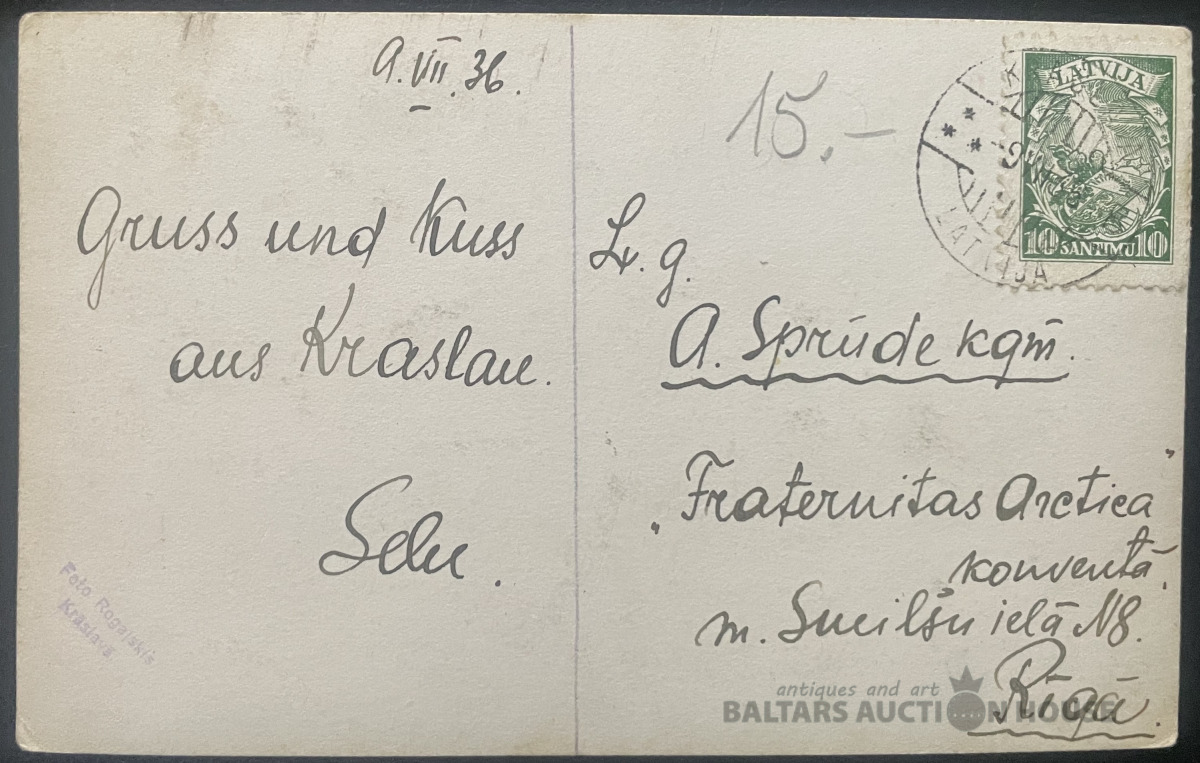 9.VII.36.
Gruss und Kuss
aus Kraslau.
Foto Rogalskis
Krāslava
15.-
LATVIJA
10 SANTIMU 10
LATVIJA
Lv. g.
A. Sprūde kgm.
„Fraternitas Arctica"
konventā.
m. Smilšu ielā №8.
Rīgā.
antiques and art
BALTARS AUCTION HOUSE